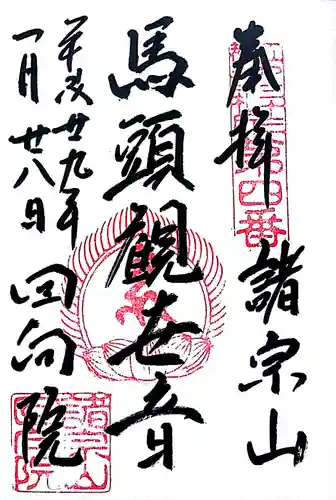 奉拝
諸宗山
馬頭観世音
平成廿九年
一月廿八日
回向院
第四番